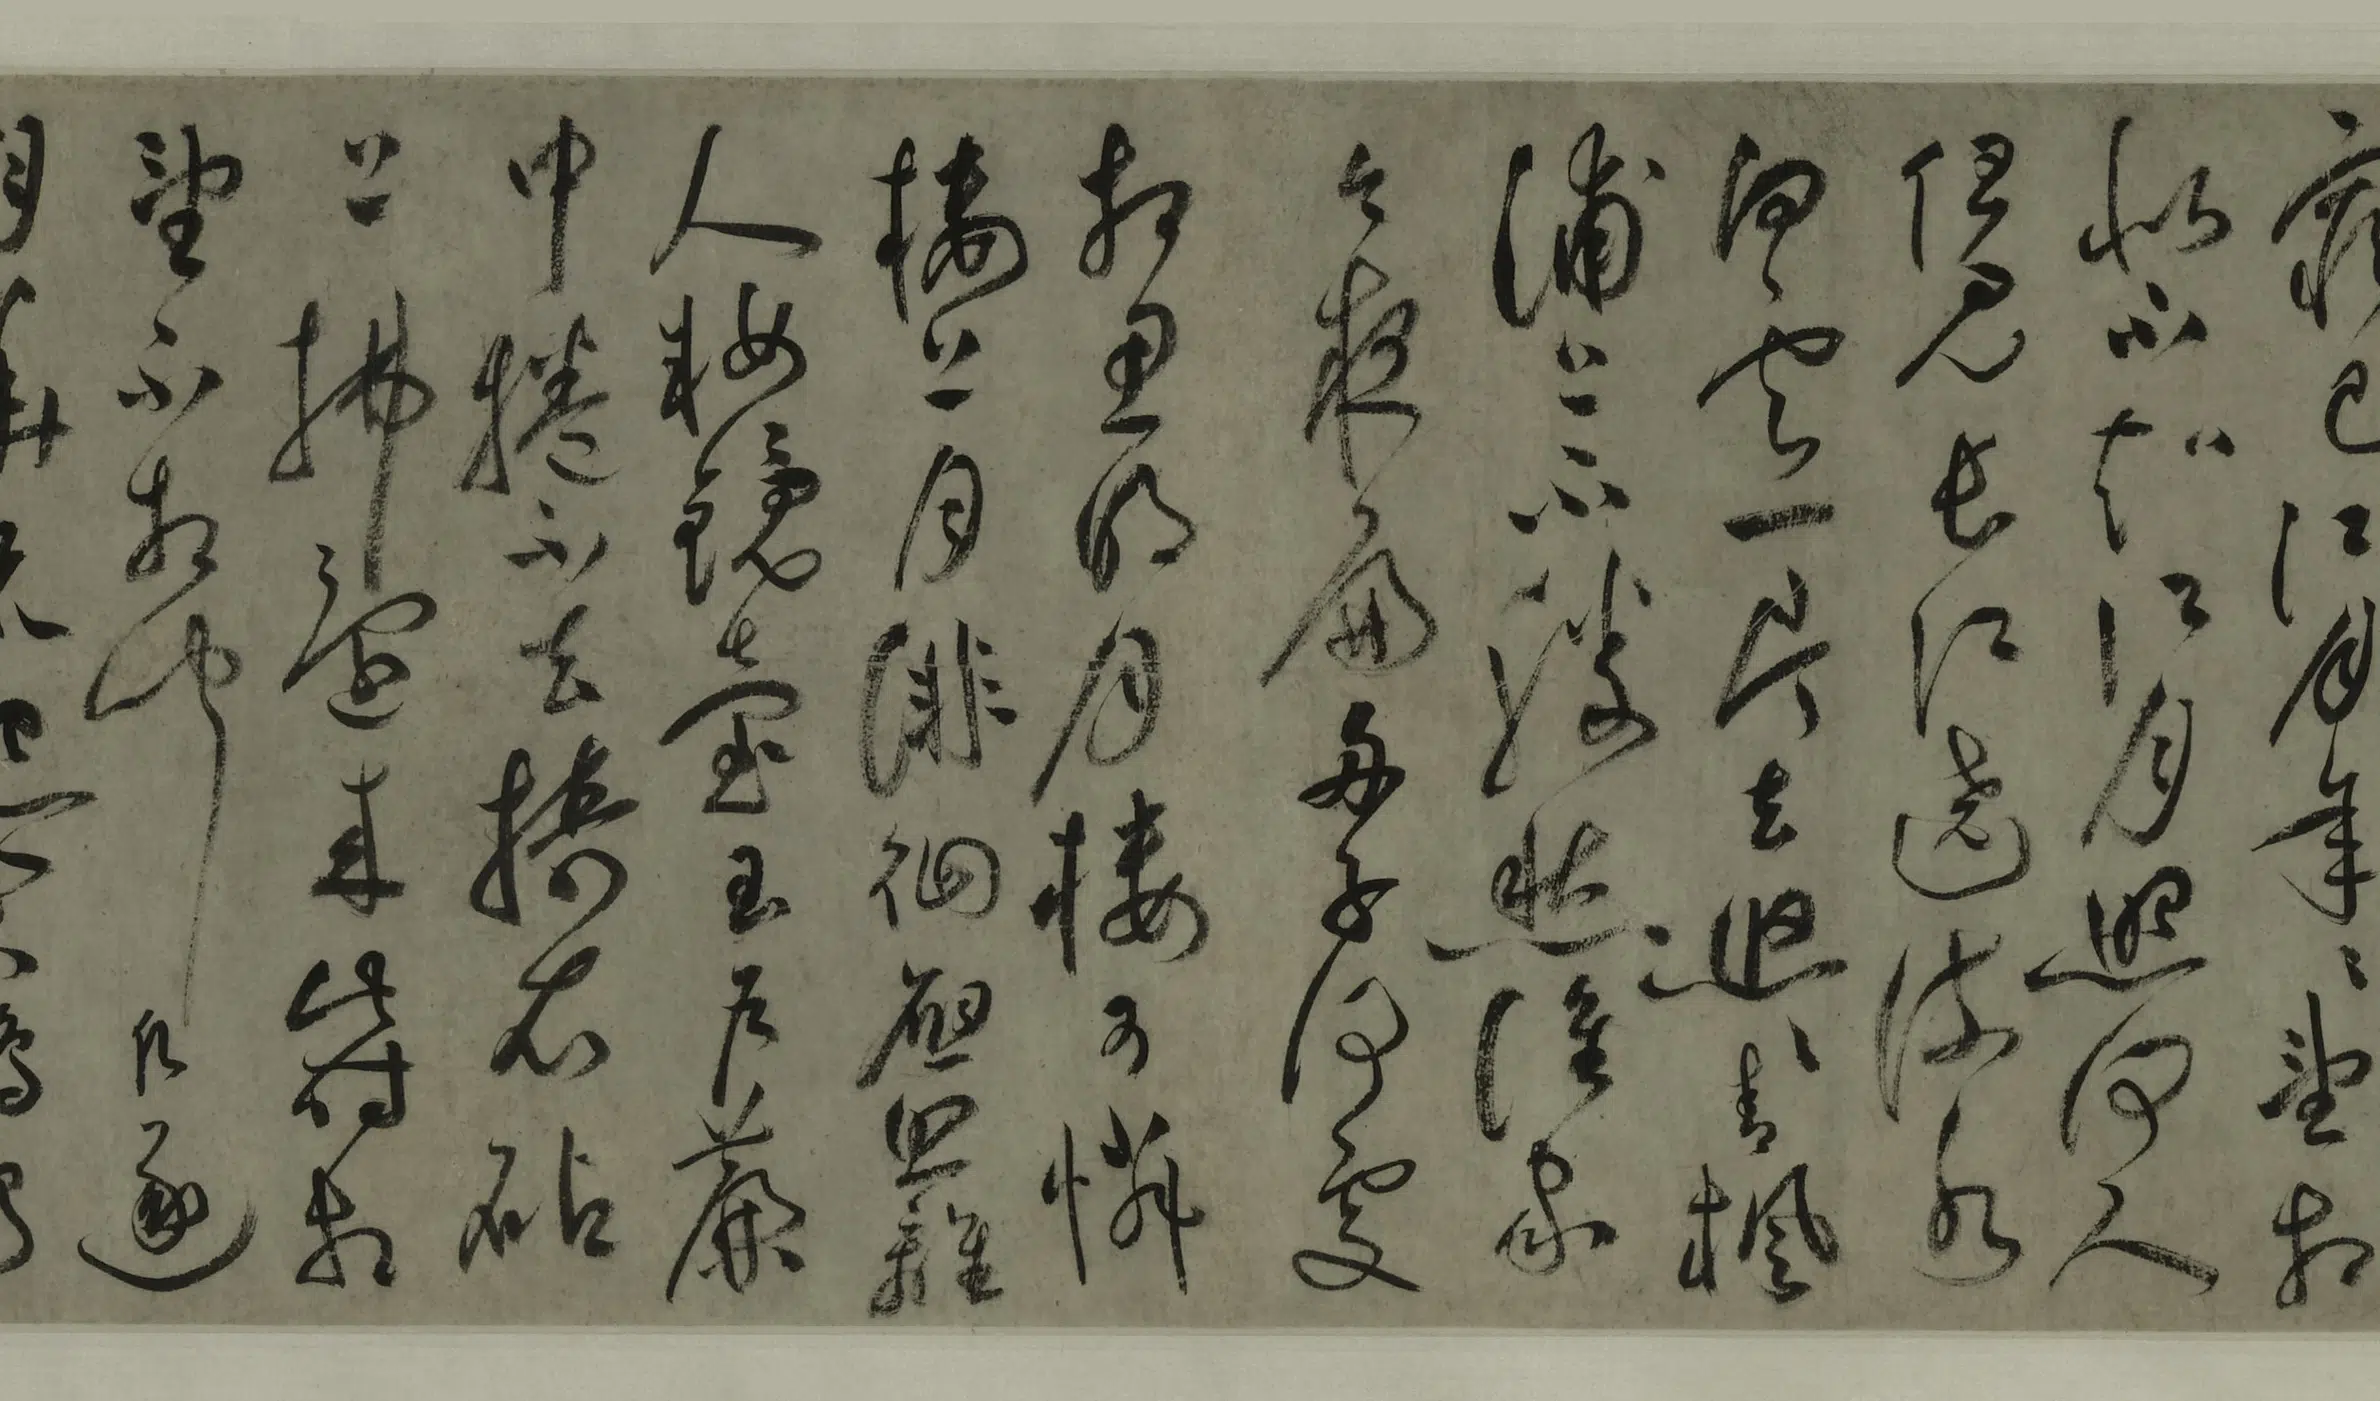 窮已江月年〻望相
似不知江月照何人
但見長江送流水
白雲一片去悠〻青楓
浦上不勝愁誰家
今夜扁舟子何處
相思明月樓可憐
樓上月徘徊應照離
人妝鏡臺玉戶簾
中捲不去擣衣砧
上拂還來此時相
望不相聞願逐
月華流照君鴻